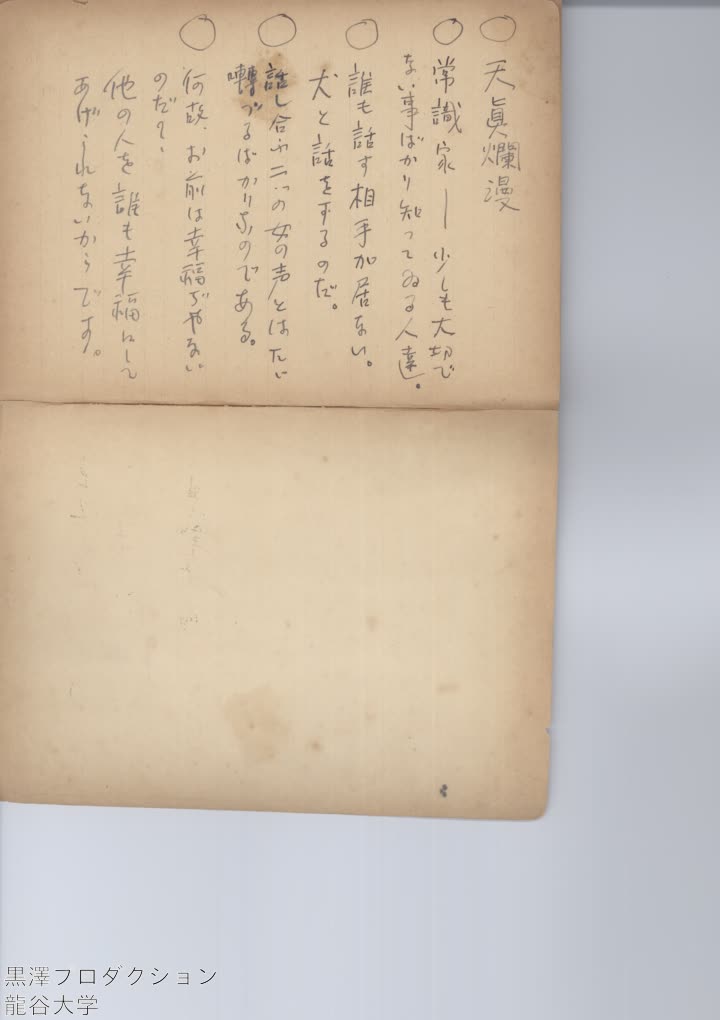 ○ 天眞爛漫
○ 常識家―少しも大切で
ない事ばかり知ってゐる人達。
○ 誰も話す相手が居ない。
犬と話をするのだ。
○ 話し合ふ二つの女の声とはたゞ
囀づるばかりなのである。
○ 何故、お前は幸福ぢやない
のだ?、
他の人を誰も幸福にして
あげられないからです。
黒澤プロダクション
龍谷大学